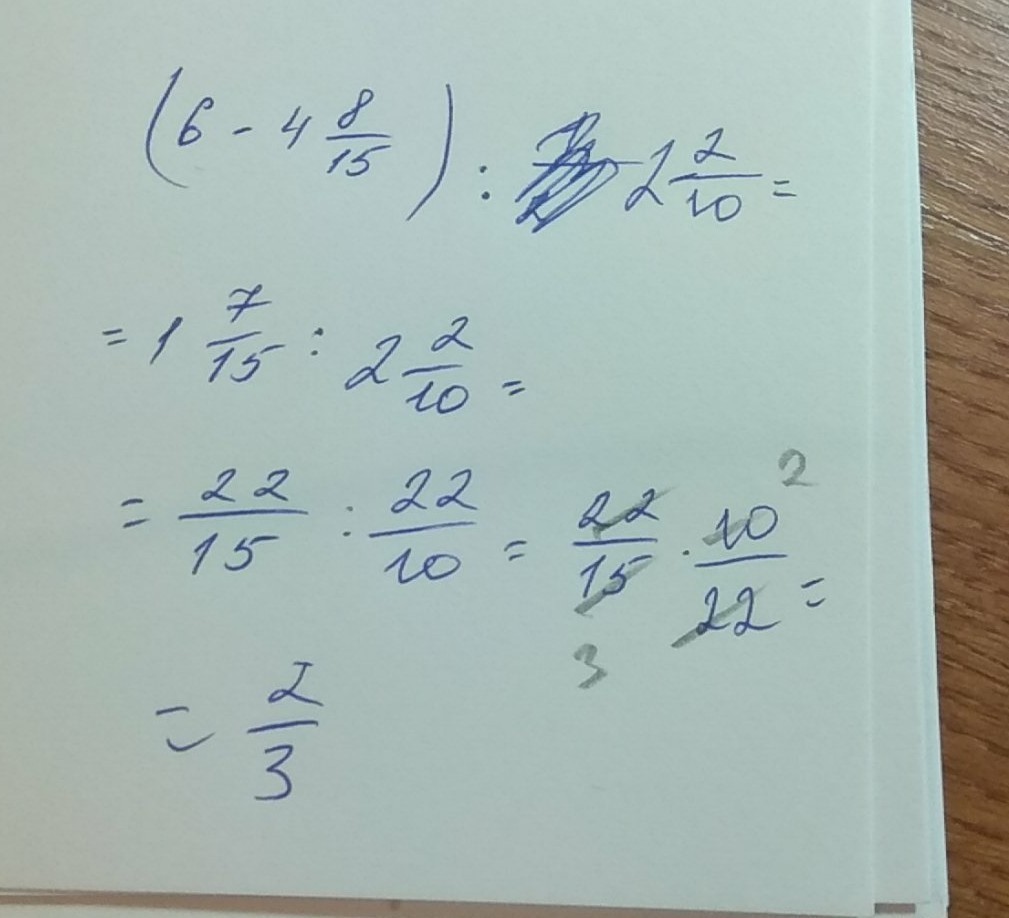 (6 - 4 8/15) : 2 2/10 =
= 1 7/15 : 2 2/10 =
= 22/15 : 22/10 = 22/15 · 10/22 =
2
3
= 2/3